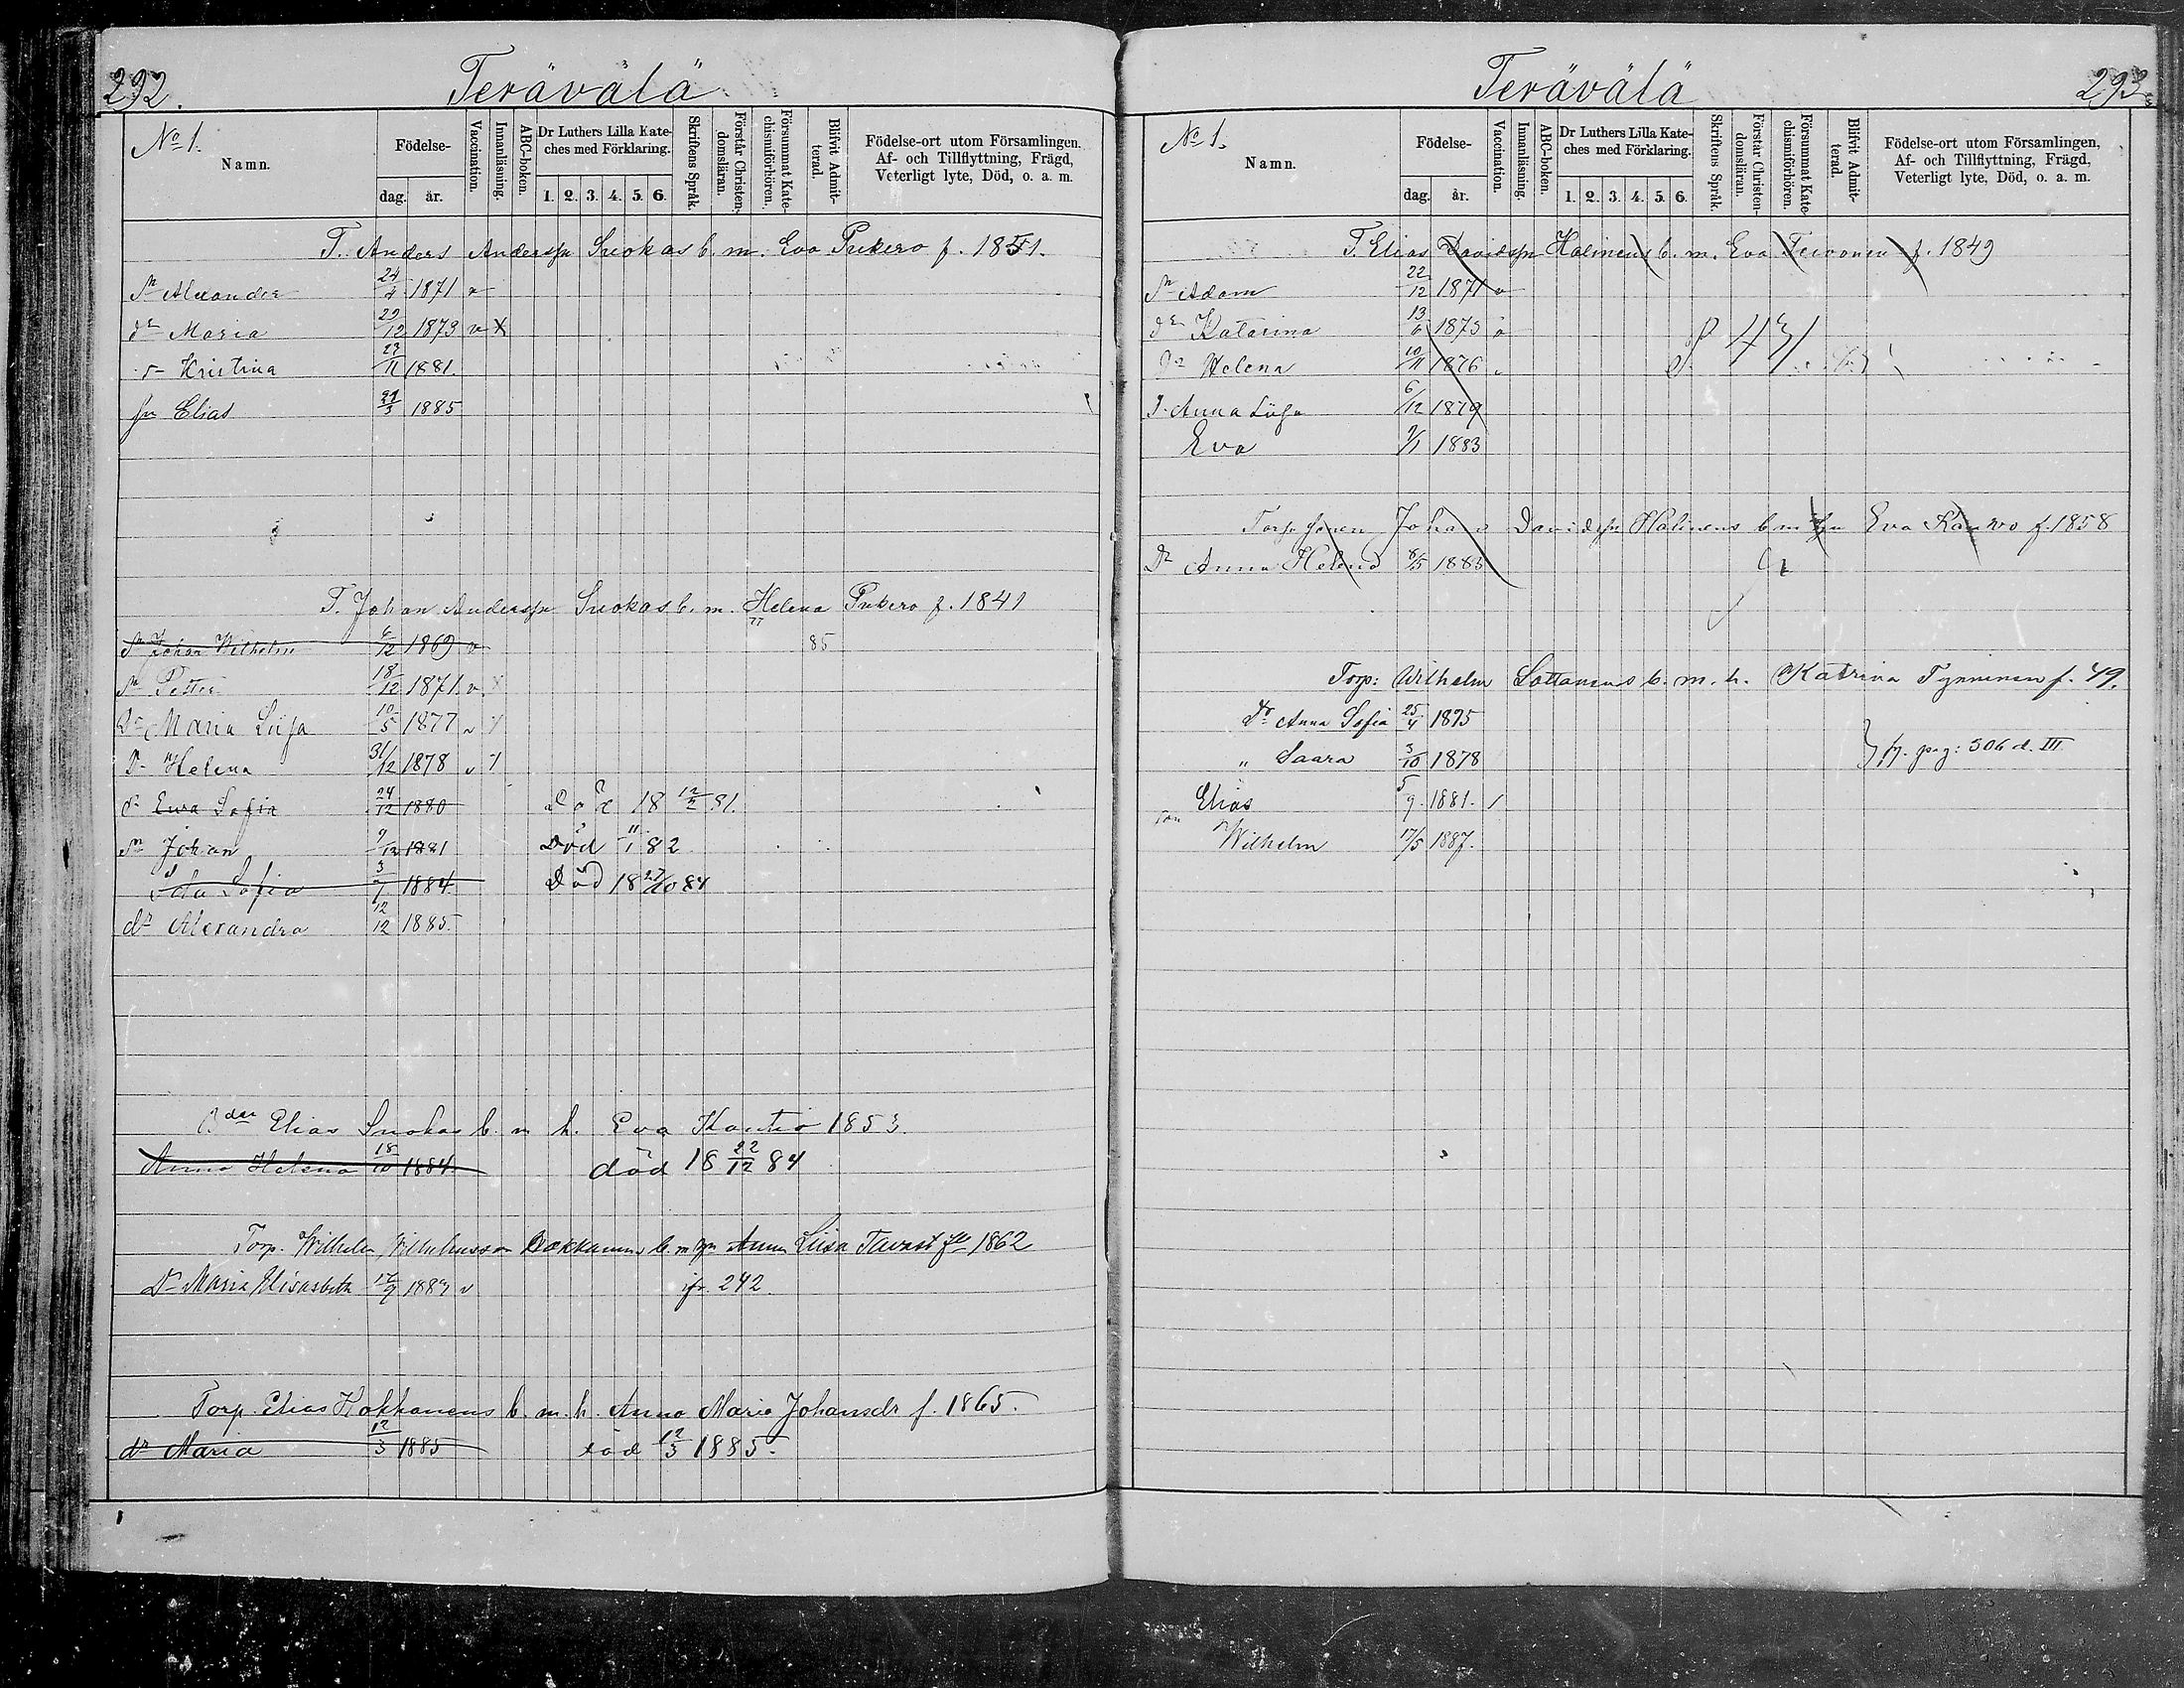 292.
Terävälä
No 1.
Namn.
Födelse-
dag. år.
Vaccination.
Innanläsning.
ABC-boken.
Dr Luthers Lilla Kate-
ches med Förklaring.
1. 2. 3. 4. 5. 6.
Skriftens Språk.
Förstår Christen-
domsläran.
Försummat Kate-
chismiförhören.
Blifvit Admit-
terad.
Födelse-ort utom Församlingen.
Af- och Tillflyttning, Frägd,
Veterligt lyte, Död, o. a. m.
T. Anders Anderssn Suokas b. m. Eva Pukero f. 1851.
Sn Alexander 24/4 1871 v
dr Maria 29/12 1873 v x
dr Kristina 23/11 1881.
sn Elias 21/3 1885
T. Johan Anderssn Suokas b. m. Helena Pukero f. 1841
Sn Johan Wilhelm 6/12 1869 v 85
Sn Petter 18/12 1871 v x
Dr Maria Liisa 10/5 1877 v
Dr Helena 31/12 1878 v
dr Ewa Sofia 24/12 1880 Död 18 12/2 81.
sn Johan 9/12 1881 Död 11/1 82
Ida Sofia 3/1 1884. Död 18 27/10 84
dr Alexandra 12/12 1885.
Elias Suokas b. m. h. Eva Kontio 1853.
Anna Helena 18/10 1884. död 18 22/12 84
Torp. Wilhelm Wilhelmsson b. m Anna Liisa Tavast 1862
Dr Maria Elisabeth 12/9 1889 v 242.
Torp. Elias Kokkonens b. m. h. Anna Maria Johansdr f. 1865.
dr Maria 12/3 1885 död 12/3 1885.
Terävälä
293
No 1.
Namn.
Födelse-
dag. år.
Vaccination.
Innanläsning.
ABC-boken.
Dr Luthers Lilla Kate-
ches med Förklaring.
1. 2. 3. 4. 5. 6.
Skriftens Språk.
Förstår Christen-
domsläran.
Försummat Kate-
chismiförhören.
Blifvit Admit-
terad.
Födelse-ort utom Församlingen,
Af- och Tillflyttning, Frägd,
Veterligt lyte, Död, o. a. m.
T. Elias Davidssn Halinens b. m. Eva Teivonen f. 1849
Sn Adam 22/12 1871 v
dr Katarina 13/6 1873
dr Helena 10/11 1876
Anna Liisa 6/12 1879
Eva 1883
Johan Davidssn Halinens b m Eva f. 1858
Dr Anna Helena 8/5 1883
Torp: Wilhelm Lottonens b. m. h. Katrina Tynninen f. 49.
Dr Anna Sofia 25/4 1875
" Saara 3/10 1878
pag: 506 d. III
Elias 5/9 1881.
son Wilhelm 17/5 1887.